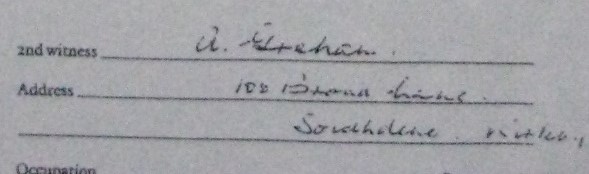 2nd witness A. Graham.
Address 108 Broad Lane.
Southdene. Kirkby,
Occupation